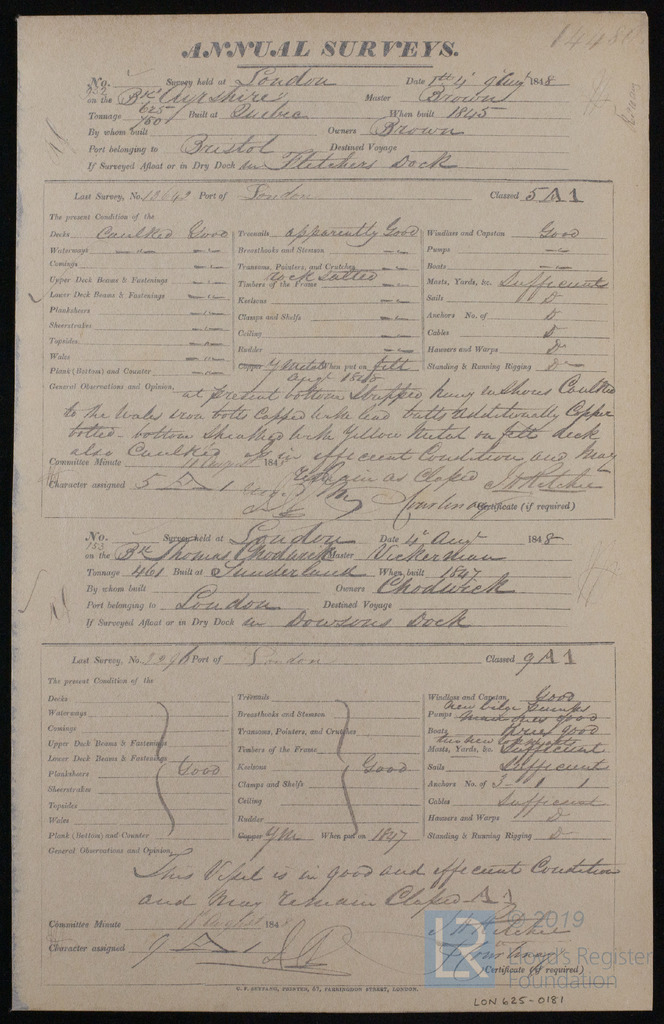 ANNUAL SURVEYS.
No. Survey held at London Date 4 Augt 1848
153 on the Bk Ayrshire Master Brown
Tonnage 625 Built at Quebec When built 1845
By whom built Owners Brown
Port belonging to Bristol Destined Voyage
If Surveyed Afloat or in Dry Dock in Fletchers Dock
Last Survey, No. 13642 Port of London Classed 5 A 1
The present Condition of the
Decks Caulked Good Treenails apparently Good Windlass and Capstan Good
Waterways Breasthooks and Stemson Pumps
Comings Transoms, Pointers, and Crutches Boats
Upper Deck Beams & Fastenings Timbers of the Frame rock salted Masts, Yards, &c. Sufficient
Lower Deck Beams & Fastenings Keelsons Sails D
Plankshears Clamps and Shelfs Anchors No. of D
Sheerstrakes Ceiling Cables D
Topsides Rudder Hawsers and Warps D
Wales Copper Y Metal When put on felt Standing & Running Rigging D
Plank (Bottom) and Counter Augt 1848
General Observations and Opinion, at present bottom stripped hung in Shores Caulked
to the Wales iron bolts Capped with lead butts additionally Copper
bolted - bottom Sheathed with Yellow Metal on felt deck
also Caulked is in efficient Condition and May
Committee Minute 11 August 1848 remain as Classed J H Ritchie
Character assigned 5 A 1 Courtenay Certificate (if required)
No. Survey held at London Date 4 Augt 1848
153 on the Bk Thomas Chadwick Master Vickerman
Tonnage 461 Built at Sunderland When built 1847
By whom built Owners Chadwick
Port belonging to London Destined Voyage
If Surveyed Afloat or in Dry Dock in Dowsons Dock
Last Survey, No. Port of London Classed 9 A 1
The present Condition of the
Decks Treenails Windlass and Capstan Good
Waterways Breasthooks and Stemson Pumps Good
Comings Transoms, Pointers, and Crutches Boats three good
Upper Deck Beams & Fastenings Timbers of the Frame Masts, Yards, &c. Sufficient
Lower Deck Beams & Fastenings Keelsons Good Sails Sufficient
Plankshears Good Clamps and Shelfs Anchors No. of 3 1 1
Sheerstrakes Ceiling Cables Sufficient
Topsides Rudder Hawsers and Warps D
Wales Copper YM When put on 1847 Standing & Running Rigging D
Plank (Bottom) and Counter
General Observations and Opinion,
This Vessel is in good and efficient Condition
and May remain Classed A 1
Committee Minute 11 August 1848 J H Ritchie
Character assigned 9 A 1 Courtenay
Certificate (if required)
PRINTER, 67, FARRINGDON STREET, LONDON.
LON 625-0181
LR © 2019
Lloyd's Register
Foundation